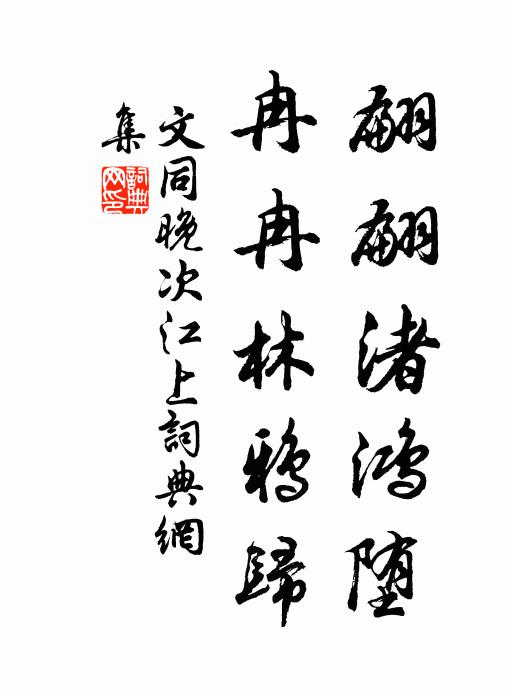 翩翩渚鸿堕
冉冉林鸦歸
文同晚次江上詞典網
集
詞典网印